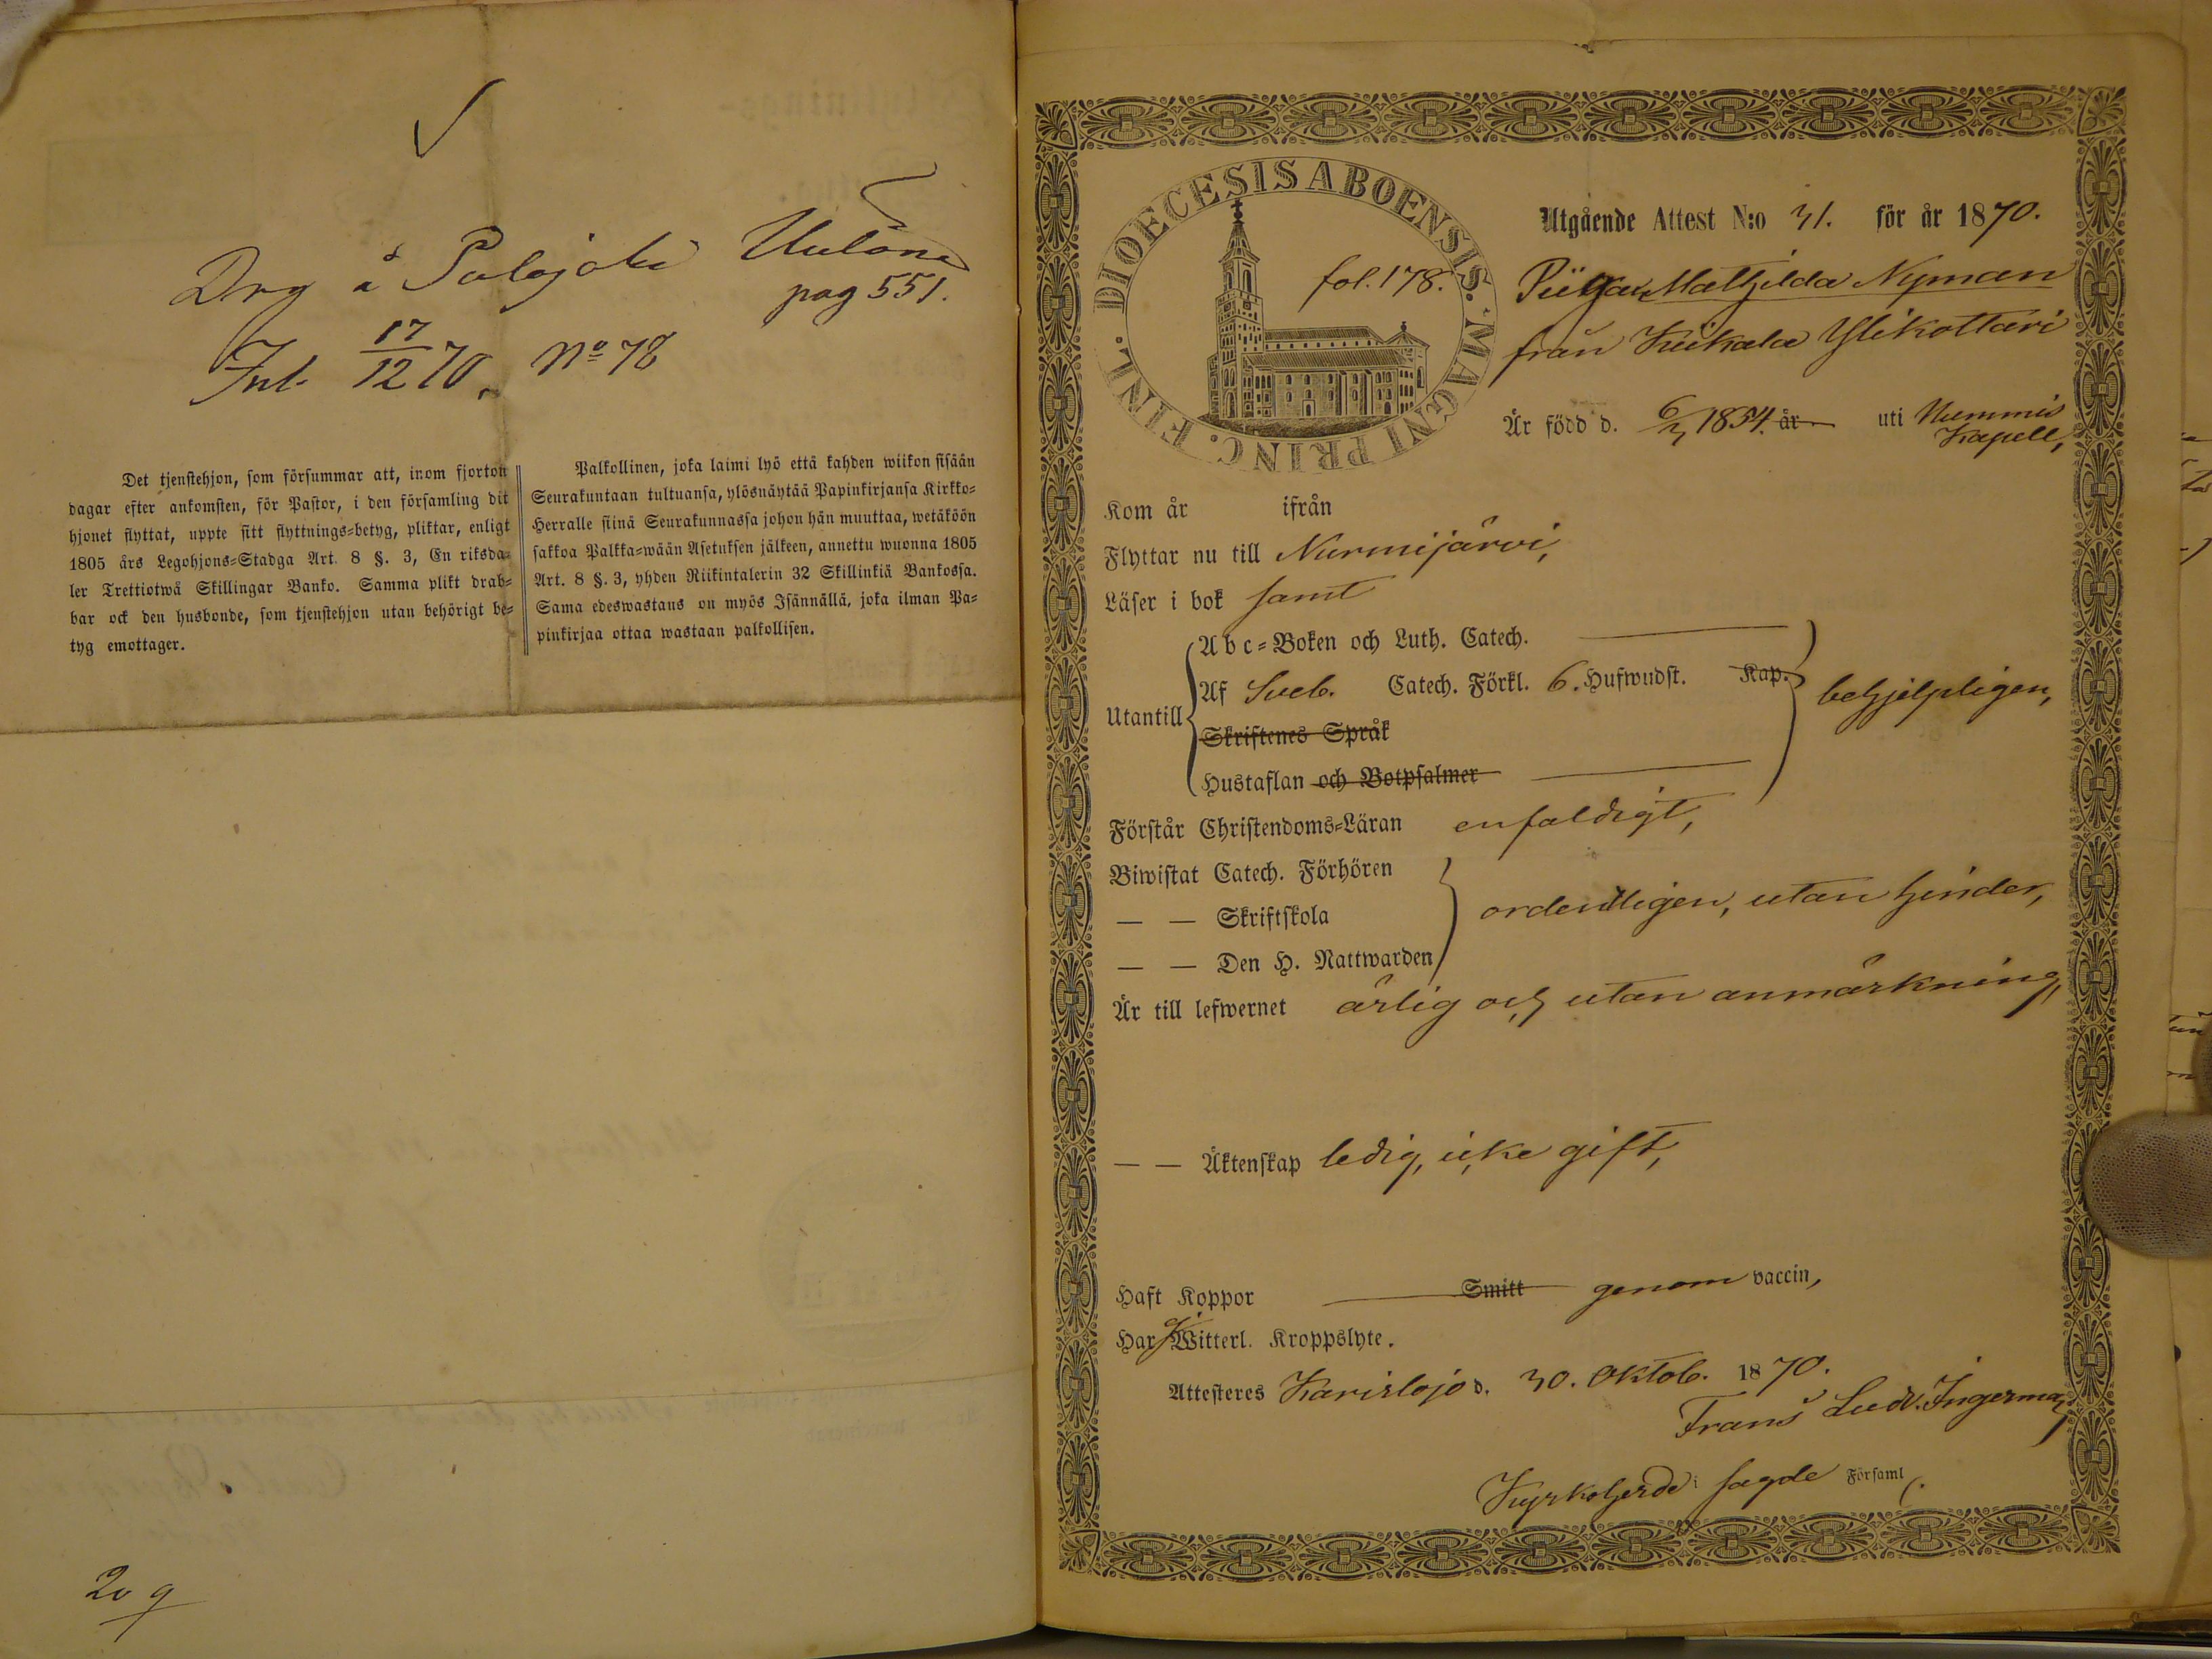 Drg å Palojoki Uulåna
pag 551.
Inl. 17/12 70. No 78
Det tjenstehjon, som försummar att, inom fjorton
dagar efter ankomsten, för Pastor, i den församling dit
hjonet flyttat, uppte sitt flyttnings-betyg, pliktar, enligt
1805 års Legohjons-Stadga Art. 8 §. 3, En riksda-
ler Trettiotwå Skillingar Banko. Samma plikt drab-
bar ock den husbonde, som tjenstehjon utan behörigt be-
tyg emottager.
Palkollinen, joka laimi lyö että kahden wiikon sisään
Seurakuntaan tultuansa, ylösnäytää Papinkirjansa Kirkko-
Herralle siinä Seurakunnassa johon hän muuttaa, wetäköön
sakkoa Palkka-wään Asetuksen jälkeen, annettu wuonna 1805
Art. 8 §. 3, yhden Riikintalerin 32 Skillinkiä Bankossa.
Sama edeswastaus on myös Isännällä, joka ilman Pa-
pinkirjaa ottaa wastaan palkollisen.
DIOECESIS ABOENSIS. MAGNI PRINC. FINL.
fol. 178.
Utgående Attest N:o 31. för år 1870.
Pigan Mathilda Nyman
från Kuikala Ylikottari
Är född d. 6/3 1854. år uti Nummis
Kapell,
Kom år ifrån
Flyttar nu till Nurmijärvi,
Läser i bok samt
Utantill
Abc-Boken och Luth. Catech.
Af Sveb. Catech. Förkl. 6. Hufwudst. Kap. behjelpligen,
Skriftenes Språk
Hustaflan och Botpsalmer
Förstår Christendoms-Läran enfaldigt,
Biwistat Catech. Förhören
— — Skriftskola ordentligen, utan hinder,
— — Den H. Nattwarden
Är till lefwernet ärlig och utan anmärkning,
— — Äktenskap ledig, icke gift,
Haft Koppor Smitt genom vaccin,
Har ej Witterl. Kroppslyte.
Attesteres Karislojo d. 30. Oktob. 1870.
Frans Ludv. Ingerman
Kyrkoherde i sagde Församl.
20 9